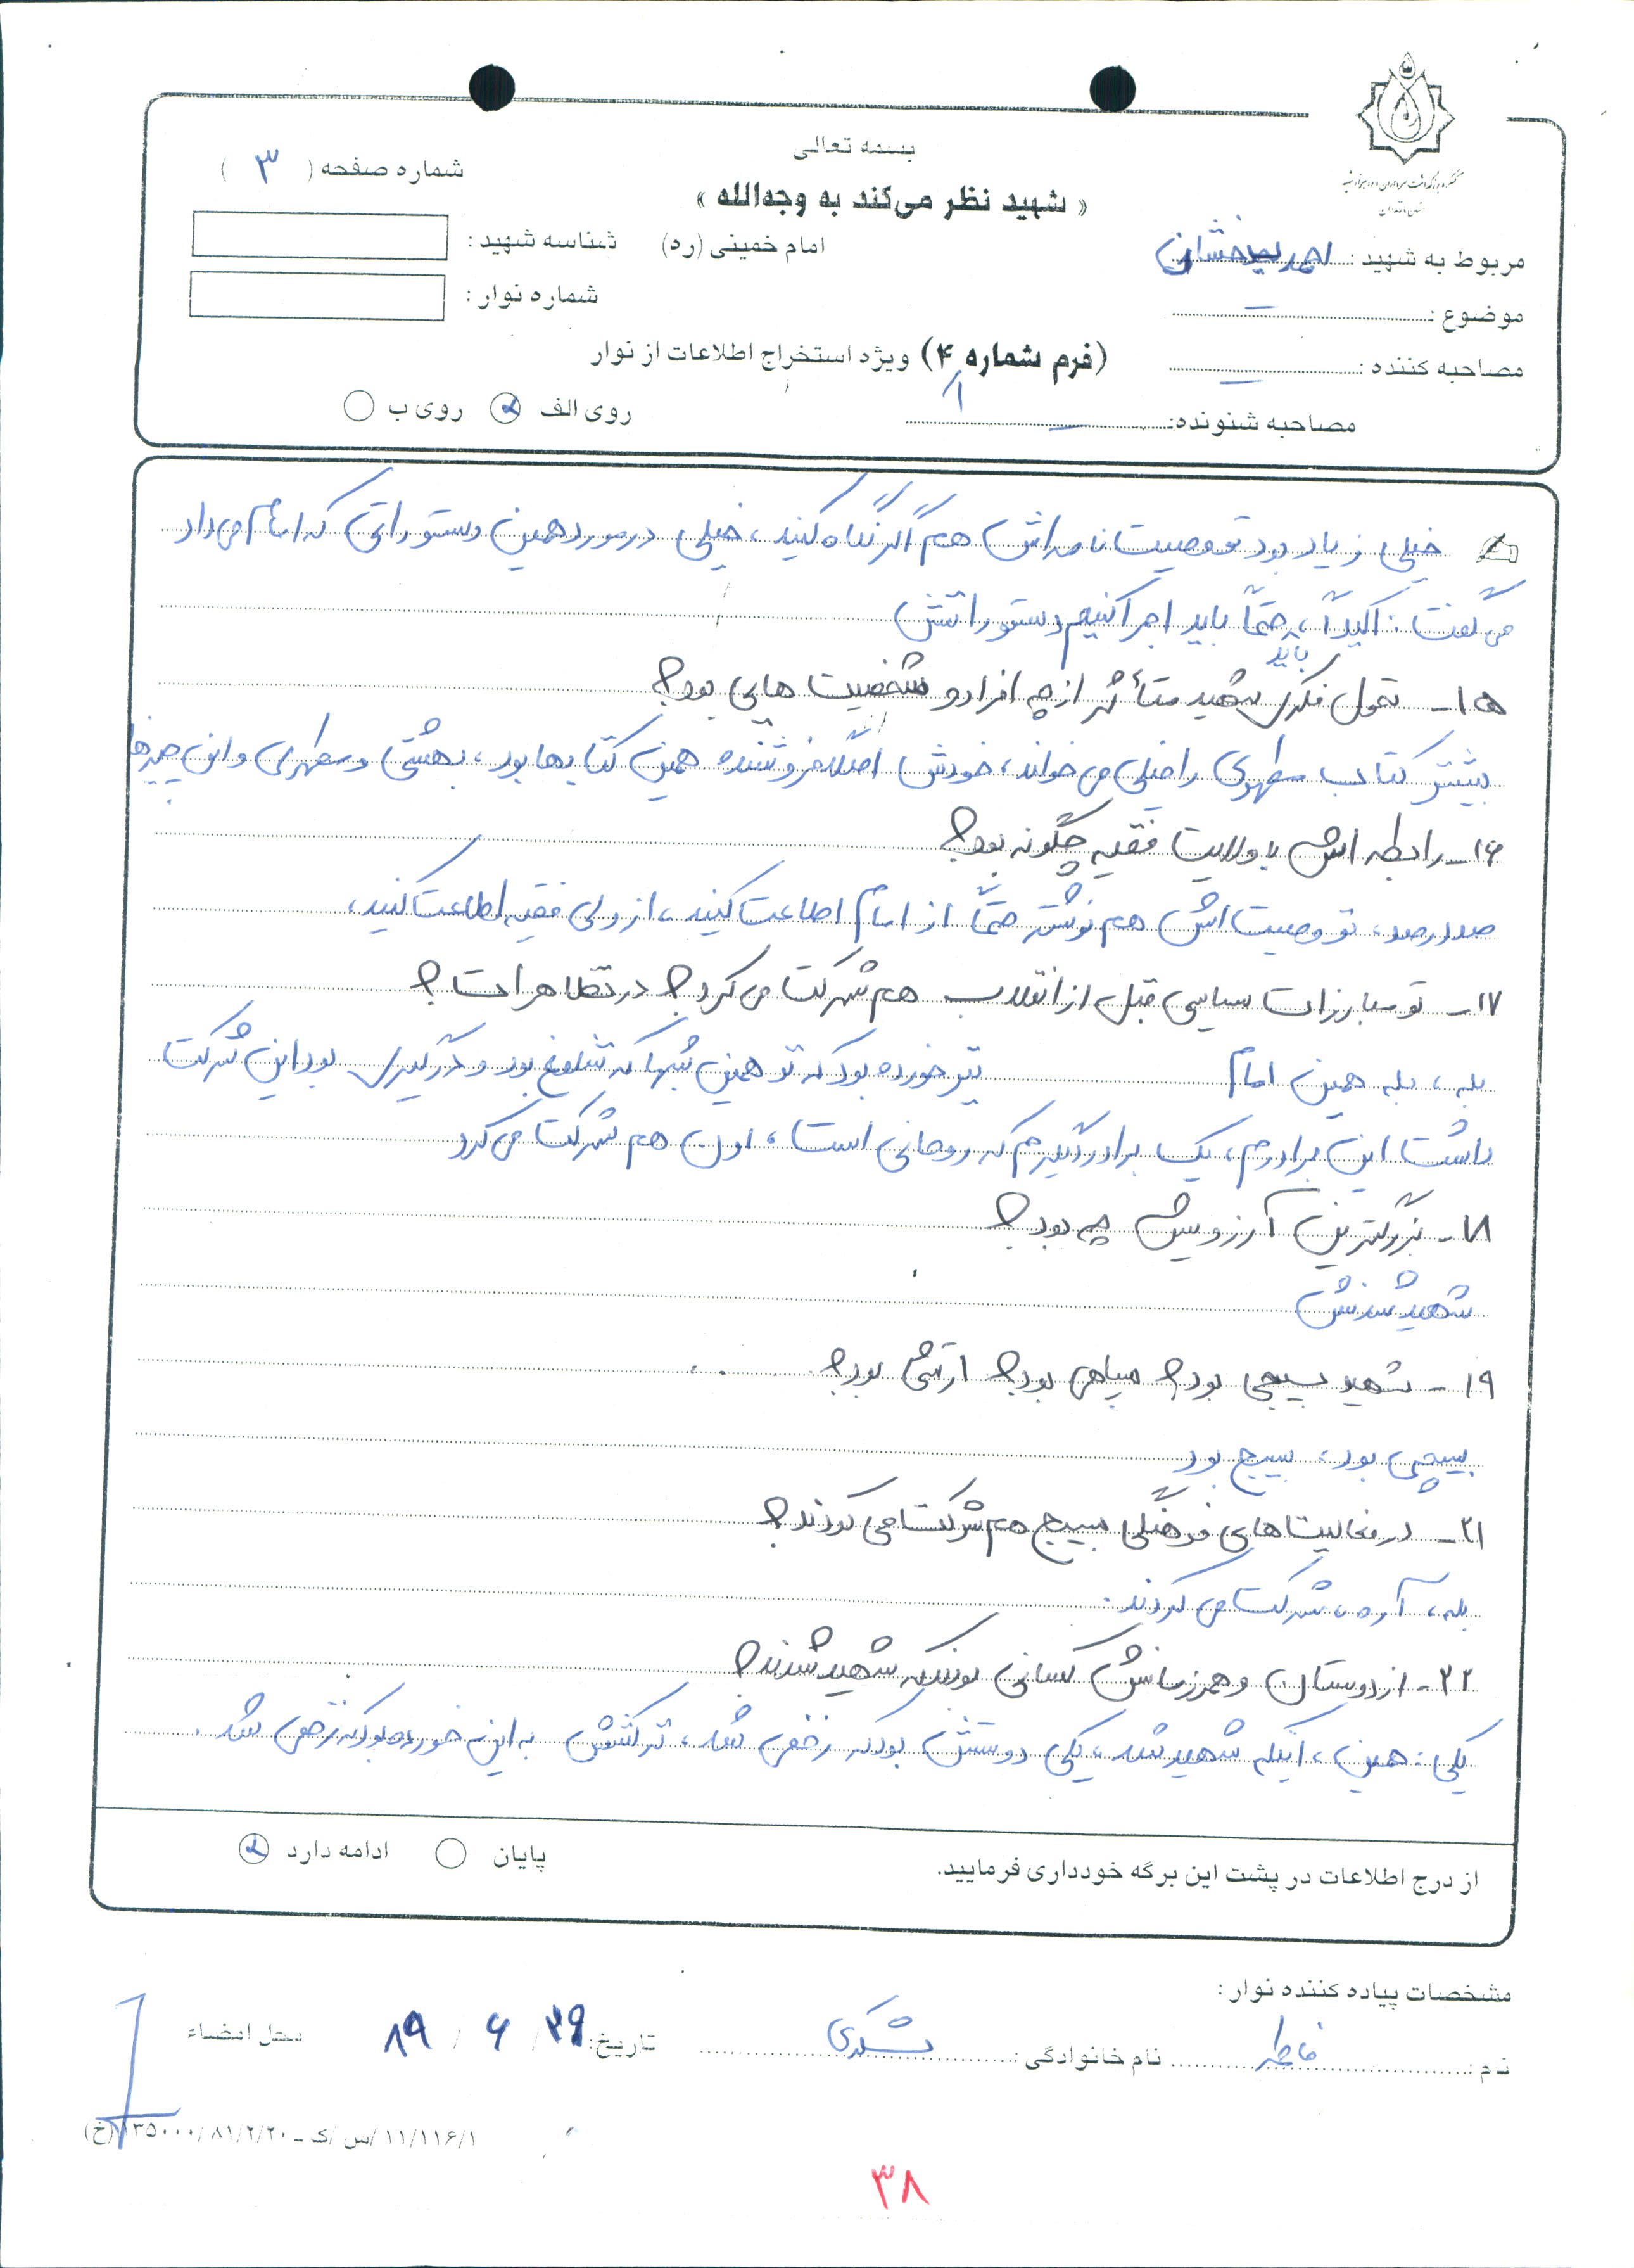 بسمه تعالی
« شهید نظر می‌کند به وجه‌الله »
امام خمینی (ره)
شماره صفحه ( ۳ )
شناسه شهید :
شماره نوار :
مربوط به شهید : احمد
موضوع : –
مصاحبه کننده : –
مصاحبه شنونده: –
(فرم شماره ۴) ویژه استخراج اطلاعات از نوار
روی الف روی ب
خیلی زیاد بود تو وصیت نامه اش هم اگر نگاه کنید، خیلی در مورد همین دستوراتی که امام می داد
می گفت: اکیداً، حتماً باید اجرا کنیم دستوراتش
باید
۱۵- تحول فکری شهید متأثر از چه افراد و شخصیت هایی بود؟
بیشتر کتاب مطهری را خیلی می خواند، خودش اصلاً فروشنده همین کتابها بود، بهشتی و مطهری و این چیزها
۱۶- رابطه اش با ولایت فقیه چگونه بود؟
صددرصد، تو وصیت اش هم نوشته حتماً از امام اطاعت کنید، از ولی فقیه اطاعت کنید،
۱۷- تو مبارزات سیاسی قبل از انقلاب هم شرکت می کرد؟ در تظاهرات؟
بله، بله همین امام تیر خورده بود که تو همین شبها که شلوغ بود و درگیری بود این شرکت
داشت این برادرم، یک برادر دیگرم که روحانی است، اون هم شرکت می کرد
۱۸- بزرگترین آرزویش چه بود؟
شهید شدنش
۱۹- شهید بسیجی بود؟ سپاهی بود؟ ارتشی بود؟
بسیجی بود، بسیج بود
۲۱- در فعالیت های فرهنگی بسیج هم شرکت می کردند؟
بله، آره، شرکت می کردند.
۲۲- از دوستان و همرزمانش کسانی بودند که شهید شدند؟
یکی: همین، اینکه شهید شد، یکی دوستش بود که زخمی شد، ترکشش به این خورده بود که زخمی شد.
از درج اطلاعات در پشت این برگه خودداری فرمایید.
پایان ادامه دارد
مشخصات پیاده کننده نوار :
نام : فاطمه نام خانوادگی : تاریخ: ۲۹ / ۶ / ۸۹ محل امضاء
۱۱/۱۱۶/۱ /س /ک ـ ۸۱/۲/۲۰/ ۱۳۵۰۰۰ (خ)
۳۸